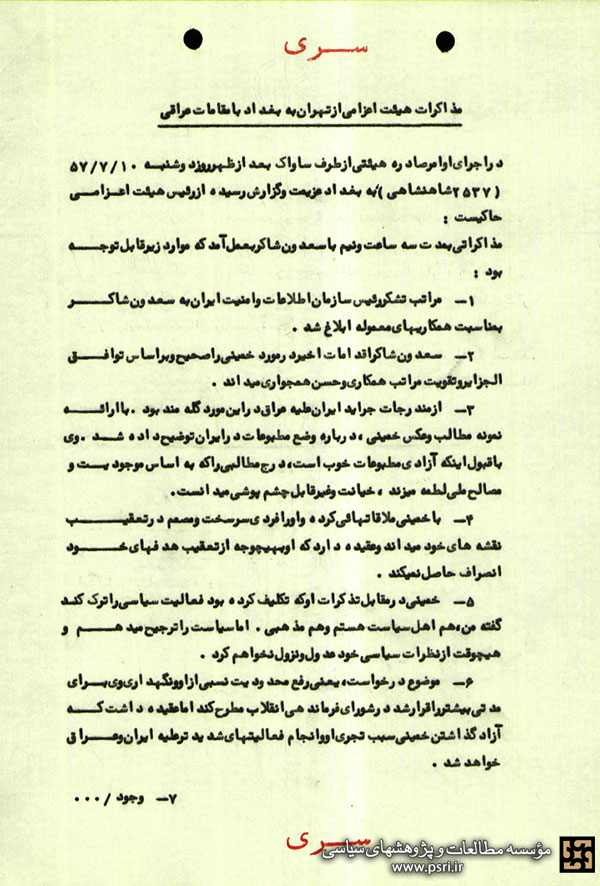 سری
مذاکرات هیئت اعزامی از تهران به بغداد با مقامات عراقی
در اجرای اوامر صادره هیئتی از طرف ساواک بعد از ظهر روز دوشنبه ۵۷/۷/۱۰
(۲۵۳۷ شاهنشاهی) به بغداد عزیمت وگزارش رسیده از رئیس هیئت اعزامی
حاکیست :
مذاکراتی بمدت سه ساعت ونیم با سعدون شاکر بعمل آمد که موارد زیر قابل توجه
بود :
۱- مراتب تشکر رئیس سازمان اطلاعات وامنیت ایران به سعدون شاکر
بمناسبت همکاریهای معموله ابلاغ شد .
۲- سعدون شاکر اقدامات اخیر در مورد خمینی را صحیح وبراساس توافق
الجزایر وتقویت مراتب همکاری وحسن همجواری میداند .
۳- از مندرجات جراید ایران علیه عراق در این مورد گله مند بود . با ارائه
نمونه مطالب وعکس خمینی ، درباره وضع مطبوعات در ایران توضیح داده شد . وی
با قبول اینکه آزادی مطبوعات خوب است، درج مطالبی راکه به اساس موجودیت و
مصالح ملی لطمه میزند ، خیانت وغیرقابل چشم پوشی میدانست.
۴- با خمینی ملاقاتهائی کرده واورا فردی سرسخت ومصمم در تعقیب
نقشه های خود میداند وعقیده دارد که او بهیچوجه از تعقیب هدفهای خود
انصراف حاصل نمیکند .
۵- خمینی در مقابل تذکرات او که تکلیف کرده بود فعالیت سیاسی را ترک کند
گفته من، هم اهل سیاست هستم وهم مذهبی . اما سیاست را ترجیح میدهم و
هیچوقت از نظرات سیاسی خود عدول ونزول نخواهم کرد .
۶- موضوع درخواست، یعنی رفع محدودیت نسبی از او ونگهداری وی برای
مدتی بیشتر را قرار شد در شورای فرماندهی انقلاب مطرح کند اما عقیده داشت که
آزاد گذاشتن خمینی سبب تجری او وانجام فعالیتهای شدیدتر علیه ایران وعراق
خواهد شد .
۷- وجود /۰۰۰
سری
مؤسسه مطالعات و پژوهشهای سیاسی
www.psri.ir